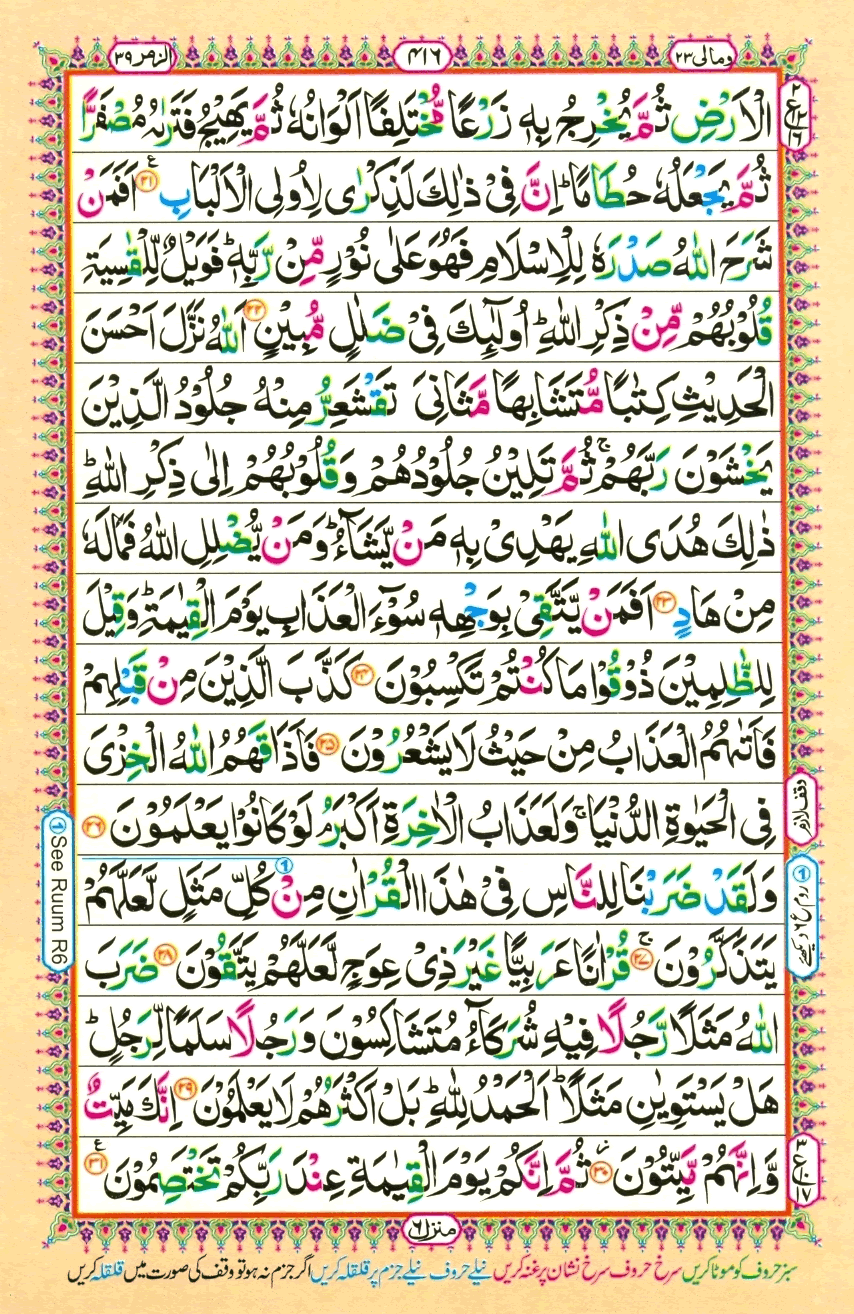 ومالی ۲۳
۴۱۶
الزمر ۳۹
الْاَرْضِ ثُمَّ يُخْرِجُ بِهٖ زَرْعًا مُّخْتَلِفًا اَلْوَانُهٗ ثُمَّ يَهِيْجُ فَتَرٰىهُ مُصْفَرًّا
ثُمَّ يَجْعَلُهٗ حُطَامًا ؕ اِنَّ فِىْ ذٰلِكَ لَذِكْرٰى لِاُولِى الْاَلْبَابِ ۲۱ ع اَفَمَنْ
شَرَحَ اللّٰهُ صَدْرَهٗ لِلْاِسْلَامِ فَهُوَ عَلٰى نُوْرٍ مِّنْ رَّبِّهٖ ؕ فَوَيْلٌ لِّلْقٰسِيَةِ
قُلُوْبُهُمْ مِّنْ ذِكْرِ اللّٰهِ ؕ اُولٰٓئِكَ فِىْ ضَلٰلٍ مُّبِيْنٍ ۲۲ اَللّٰهُ نَزَّلَ اَحْسَنَ
الْحَدِيْثِ كِتٰبًا مُّتَشَابِهًا مَّثَانِىَ تَقْشَعِرُّ مِنْهُ جُلُوْدُ الَّذِيْنَ
يَخْشَوْنَ رَبَّهُمْ ۚ ثُمَّ تَلِيْنُ جُلُوْدُهُمْ وَقُلُوْبُهُمْ اِلٰى ذِكْرِ اللّٰهِ ؕ
ذٰلِكَ هُدَى اللّٰهِ يَهْدِىْ بِهٖ مَنْ يَّشَآءُ ؕ وَمَنْ يُّضْلِلِ اللّٰهُ فَمَا لَهٗ
مِنْ هَادٍ ۲۳ اَفَمَنْ يَّتَّقِىْ بِوَجْهِهٖ سُوْٓءَ الْعَذَابِ يَوْمَ الْقِيٰمَةِ ؕ وَقِيْلَ
لِلظّٰلِمِيْنَ ذُوْقُوْا مَا كُنْتُمْ تَكْسِبُوْنَ ۲۴ كَذَّبَ الَّذِيْنَ مِنْ قَبْلِهِمْ
فَاَتٰىهُمُ الْعَذَابُ مِنْ حَيْثُ لَا يَشْعُرُوْنَ ۲۵ فَاَذَاقَهُمُ اللّٰهُ الْخِزْىَ
فِى الْحَيٰوةِ الدُّنْيَا ۚ وَلَعَذَابُ الْاٰخِرَةِ اَكْبَرُ ۘ لَوْ كَانُوْا يَعْلَمُوْنَ ۲۶
وَلَقَدْ ضَرَبْنَا لِلنَّاسِ فِىْ هٰذَا الْقُرْاٰنِ مِنْ كُلِّ مَثَلٍ لَّعَلَّهُمْ
يَتَذَكَّرُوْنَ ۚ ۲۷ قُرْاٰنًا عَرَبِيًّا غَيْرَ ذِىْ عِوَجٍ لَّعَلَّهُمْ يَتَّقُوْنَ ۲۸ ضَرَبَ
اللّٰهُ مَثَلًا رَّجُلًا فِيْهِ شُرَكَآءُ مُتَشَاكِسُوْنَ وَرَجُلًا سَلَمًا لِّرَجُلٍ ؕ
هَلْ يَسْتَوِيٰنِ مَثَلًا ؕ اَلْحَمْدُ لِلّٰهِ ؕ بَلْ اَكْثَرُهُمْ لَا يَعْلَمُوْنَ ۲۹ اِنَّكَ مَيِّتٌ
وَّاِنَّهُمْ مَّيِّتُوْنَ ۳۰ ثُمَّ اِنَّكُمْ يَوْمَ الْقِيٰمَةِ عِنْدَ رَبِّكُمْ تَخْتَصِمُوْنَ ۳۱ ع
۲ ع ۱۲ ۱۶
وقف لازم
① روم ع ۶ دیکھئے
① See Ruum R6
۳ ع ۱۰ ۱۷
منزل ۶
سبز حروف کو موٹا کریں سرخ حروف سرخ نشان پر غنہ کریں نیلے حروف نیلے جزم پر قلقلہ کریں اگر جزم نہ ہو تو وقف کی صورت میں قلقلہ کریں